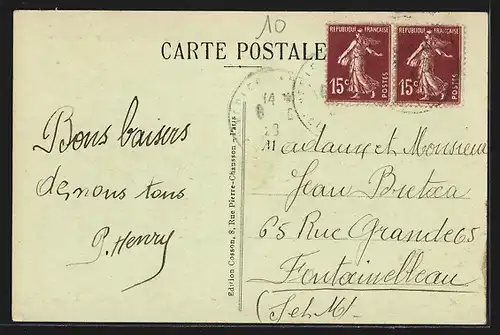 10
CARTE POSTALE
REPUBLIQUE FRANÇAISE
15c POSTES
REPUBLIQUE FRANÇAISE
15c POSTES
14
6
Bons baisers
de nous tous
P. Henry
Edition Cosson, 8, Rue Pierre-Chausson - Paris
Madame et Monsieur
Jean
65 Rue Grande 65
Fontainebleau
(S et M)